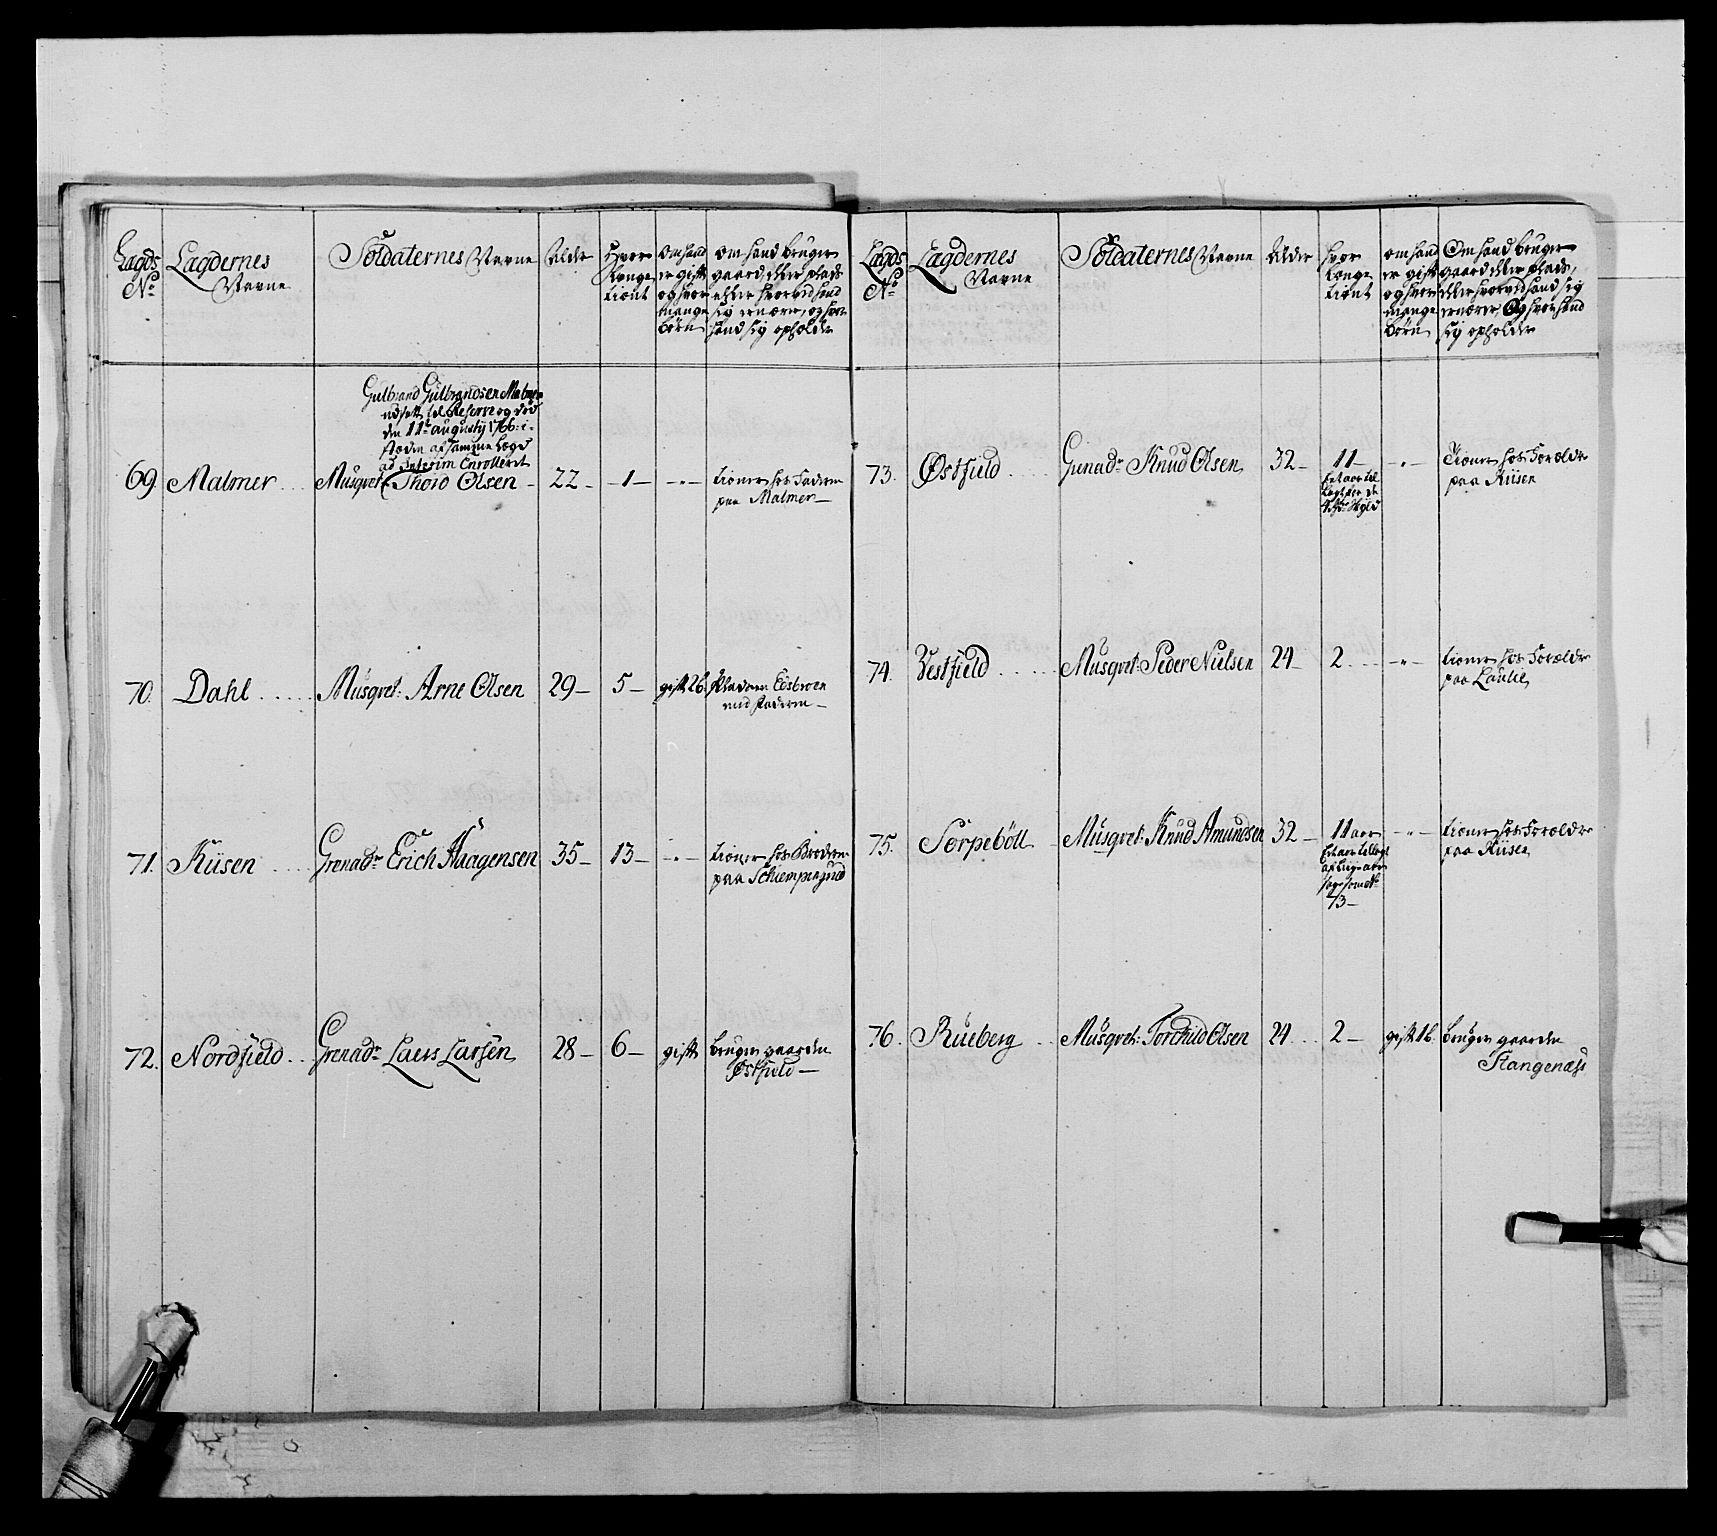 Lagds No
Lagdernes Navne
Soldaternes Navne
Alder
Hvor længe tient
Om hand er gift og hvor mange børn
Om hand bruger gaard eller plads eller hvorved hand sig ernærer, og hvor hand sig opholder
Gulbrand Gulbrandsen Malmer
udsatt til Reserve og død
den 11te augustij 1766: i
støden af samme Lægd
ad Interim Enrolleret
69. Malmer . . Musqvet: Thord Olsen – 22 – – 1 – – „ – tiener hos Faderen
paa Malmer –
70. Dahl . . . . . Musqvet: Arne Olsen 29 – 5 – gift 2b. Pladsen
med Faderen –
71. Kiisen . . . . Grenadr Erich Haagensen 35 – 13 – – „ – tiener hos Broderen
paa
72. Nordfield . . Grenadr Laers Larsen 28 – 6 – gift bruger gaarden
Østfield –
Lagds No
Lagdernes Navne
Soldaternes Navne
Alder
hvor længe tient
om hand er gift og hvor mange børn
Om hand bruger gaard eller plads, eller hvorved hand sig ernærer, Og hvor hand sig opholder
73. Østfield . . . Grenadr Knud Olsen 32 – 11 – – „ – Tiener hos Forældre
paa Kiisen
74. Vestfield . . . . . Musqvet: Peder Nielsen 24 – 2 . . . – „ – tiener hos Forældre
paa
75. Sørpeböll Musqvet: Knud Amundsen 32 – 11 aar – „ – tiener hos Forældre
paa Kiisen
73 –
76. Rueberg . . Musqvet: Torchild Olsen 24 . . . 2 – gift 1b. bruger gaarden
Stangenæss